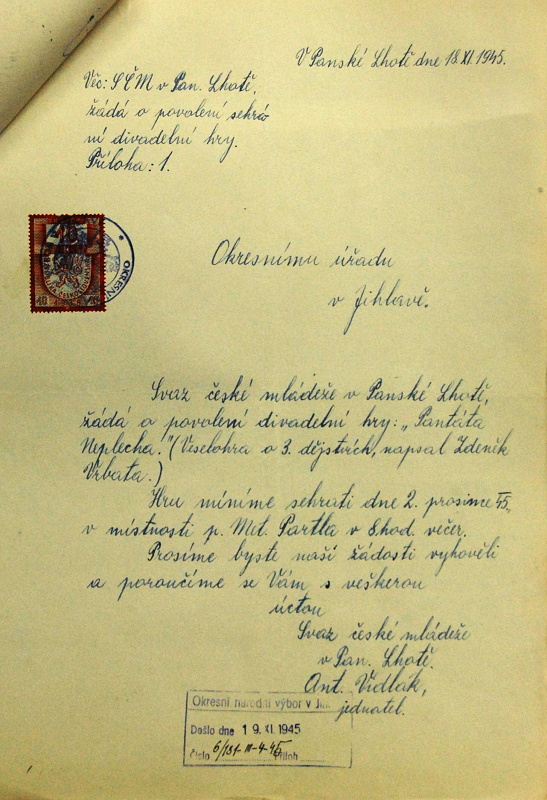 V Panské Lhotě dne 18.XI.1945.
Věc: SČM v Pan. Lhotě,
žádá o povolení sehrá
ní divadelní hry.
Příloha: 1.
OKRESNÍ
Okresnímu úřadu
v Jihlavě.
Svaz české mládeže v Panské Lhotě,
žádá o povolení divadelní hry: „Pantáta
Neplecha." (Veselohra o 3. dějstvích, napsal Zdeněk
Vrbata.)
Hru míníme sehrati dne 2. prosince 45,
v místnosti p. Met. Partla v 8 hod. večer.
Prosíme byste naší žádosti vyhověli
a poroučíme se Vám s veškerou
úctou
Svaz české mládeže
v Pan. Lhotě.
Ant. Vidlák,
jednatel.
Okresní národní výbor v Jih
Došlo dne 19. XI. 1945
Číslo Příloh